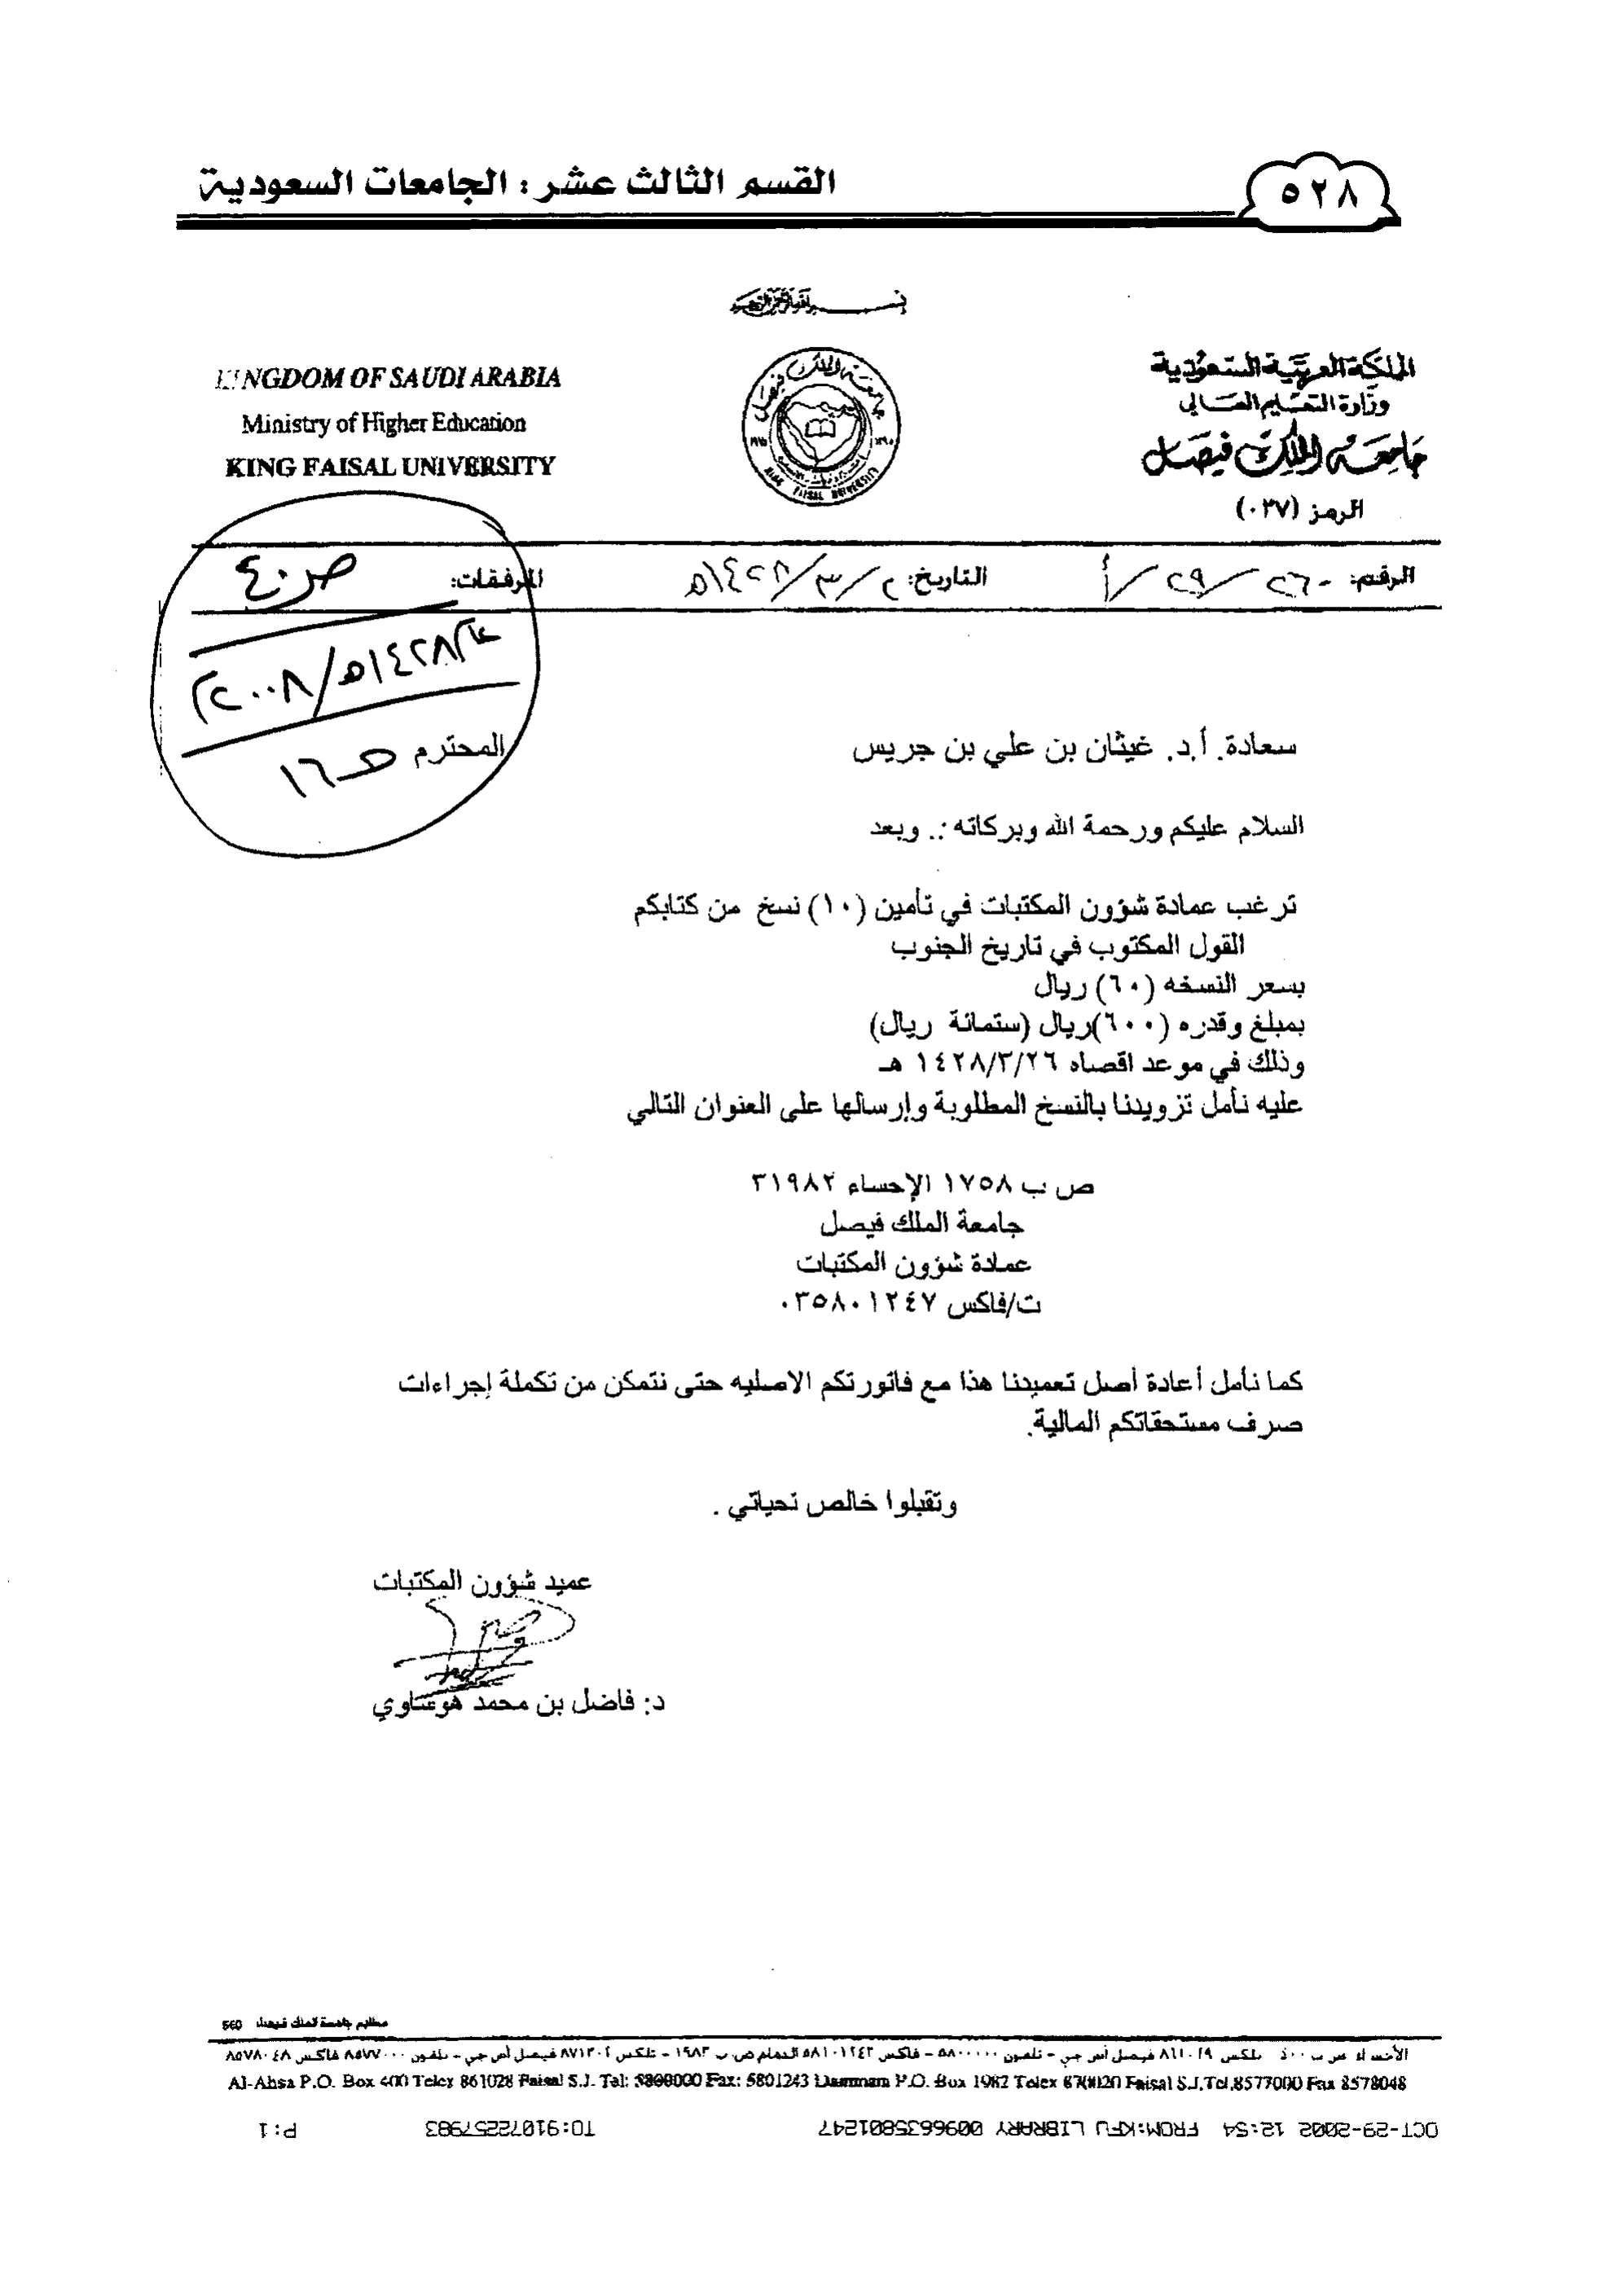 القسم الثالث عشر : الجامعات السعودية
٥٢٨
KINGDOM OF SAUDI ARABIA
Ministry of Higher Education
KING FAISAL UNIVERSITY
المملكة العربية السعودية
وزارة التعليم العالي
جامعة الملك فيصل
الرمز (٠٣٧)
جامعة الملك فيصل
KING FAISAL UNIVERSITY
الرقم: ٢٦٠/٢٩/أ
التاريخ: ٢/٣/١٤٢٨هـ
المرفقات:
١٤٢٨هـ/٢٠٠٨م
سعادة. أ.د. غيثان بن علي بن جريس
المحترم
السلام عليكم ورحمة الله وبركاته .:. وبعد
ترغب عمادة شؤون المكتبات في تأمين (١٠) نسخ من كتابكم
القول المكتوب في تاريخ الجنوب
بسعر النسخه (٦٠) ريال
بمبلغ وقدره (٦٠٠)ريال (ستمائة ريال)
وذلك في موعد اقصاه ١٤٢٨/٣/٢٦ هـ
عليه نأمل تزويدنا بالنسخ المطلوبة وإرسالها على العنوان التالي
ص ب ١٧٥٨ الإحساء ٣١٩٨٢
جامعة الملك فيصل
عمادة شؤون المكتبات
ت/فاكس ٠٣٥٨٠١٢٤٧
كما نأمل أعادة أصل تعميدنا هذا مع فاتورتكم الاصليه حتى نتمكن من تكملة إجراءات
صرف مستحقاتكم المالية.
وتقبلوا خالص تحياتي .
عميد شؤون المكتبات
د: فاضل بن محمد هوساوي
مطابع جامعة الملك فيصل 560
الأحساء ص ب ٤٠٠ تلكس ٨٦١٠٢٩ فيصل أس جي - تلفون ٥٨٠٠٠٠٠ - فاكس ٥٨١٠١٢٤٣ الدمام ص ب ١٩٨٢ - تلكس ٨٧١٣٠٢ فيصل أس جي - تلفون ٨٥٧٧٠٠٠ فاكس ٨٥٧٨٠٤٨
Al-Ahsa P.O. Box 400 Telex 861028 Faisal S.J. Tel: 5800000 Fax: 5801243 Dammam P.O. Box 1982 Telex 870020 Faisal S.J.Tel.8577000 Fax 8578048
OCT-29-2002 12:54 FROM:KFU LIBRARY 0096635801247 TO:91072257983 P:1